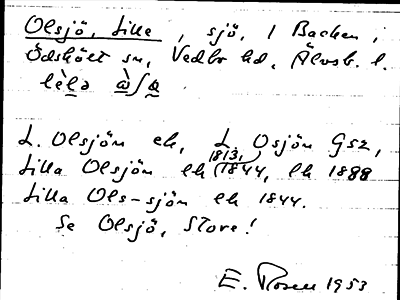 Olsjö, Lilla, sjö, i Backen i
Ödskölt sn, Vedbo hd, Älvsb. l.
L. Olsjön ek, L. Osjön Gsz,
1813,
Lilla Olsjön ek (1844, lk 1888
Lilla Ols-sjön ek 1844.
Se Olsjö, Stora!
E. Rosell 1953